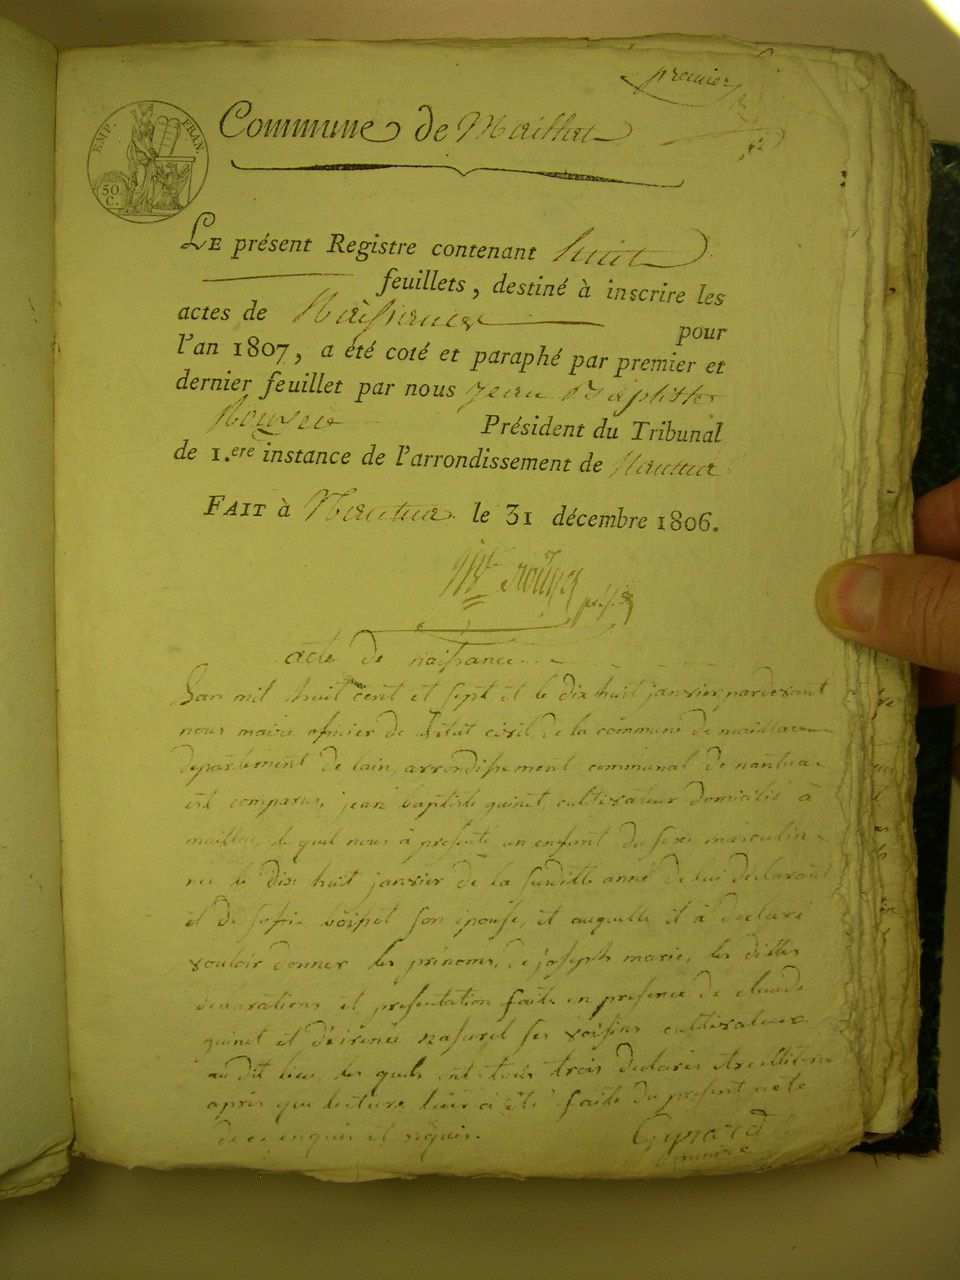 premier
EMP. FRAN.
50 C.
Commune de Maillat
LE présent Registre contenant huit
feuillets, destiné à inscrire les
actes de Naissances pour
l'an 1807, a été coté et paraphé par premier et
dernier feuillet par nous Jean Baptiste
Président du Tribunal
de 1.ere instance de l'arrondissement de Nantua
FAIT à Nantua le 31 décembre 1806.
acte de naissance
Lan mil huit cent et sept et le dix huit janvier pardevant
nous maire officier de l'état civil de la commune de maillac
departement de lain, arrondissement communal de nantua
est comparus, jean baptiste guinet, cultivateur domicilié à
maillac, le quel nous à presenté un enfant du sexe masculin
née le dix huit janvier de la susditte anné de lui declarant
et de sofie son épouse, et auquelle il à declaré
vouloir donner les prénoms, de joseph marie, les dittes
declarations et presentation faite en presence de claude
guinet et d'éirénée ses voisins cultivateur
au dit lieu, les quels ont tous trois declarés etre
après que lecture leur à été faite du present acte
de ce enquis et réquis.
maire